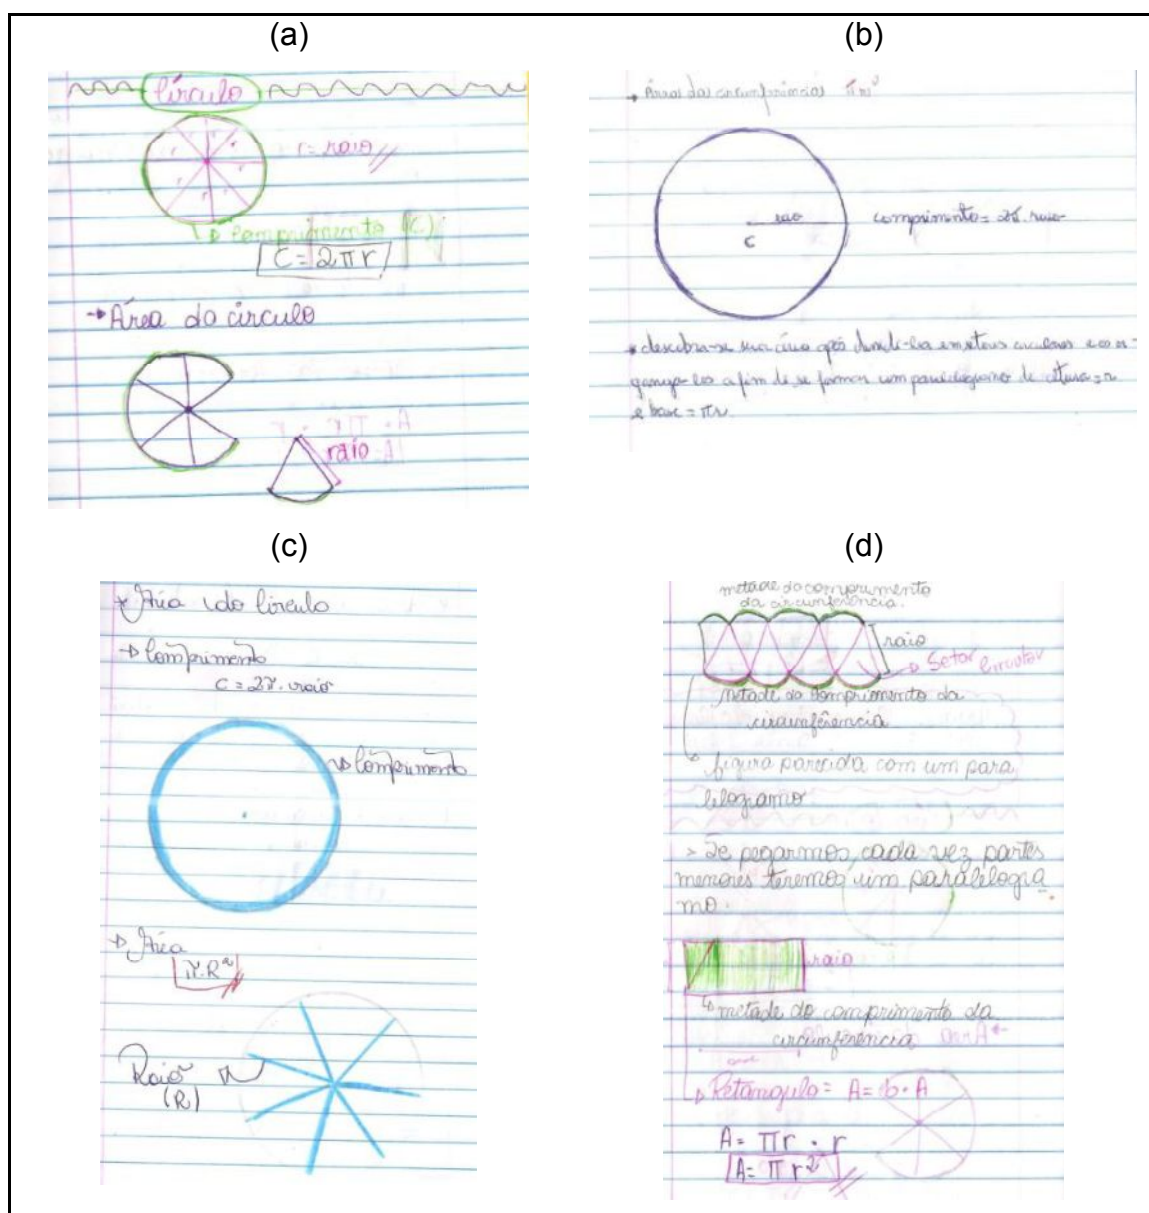 (a)
Círculo
r r r r r r
r = raio
Comprimento (C)
C = 2πr
Área do círculo
raio
(b)
Área das circunferências πr²
raio
C
comprimento = 2π. raio
descobre-se sua área após dividi-los em setores circulares e
a fim de se formar um paralelogramo de altura = r
e base = πr.
(c)
Área do Círculo
Comprimento
C = 2π. raio
Comprimento
Área
π.R²
Raio
(R)
(d)
metade do comprimento
da circunferência.
raio
Setor circular
metade do comprimento da
circunferência
figura parecida com um para
lelogramo.
> Se pegarmos cada vez partes
menores teremos um paralelogra
mo.
raio
metade do comprimento da
circunferência
Retangulo = A = b . A
A = πr . r
A = πr²